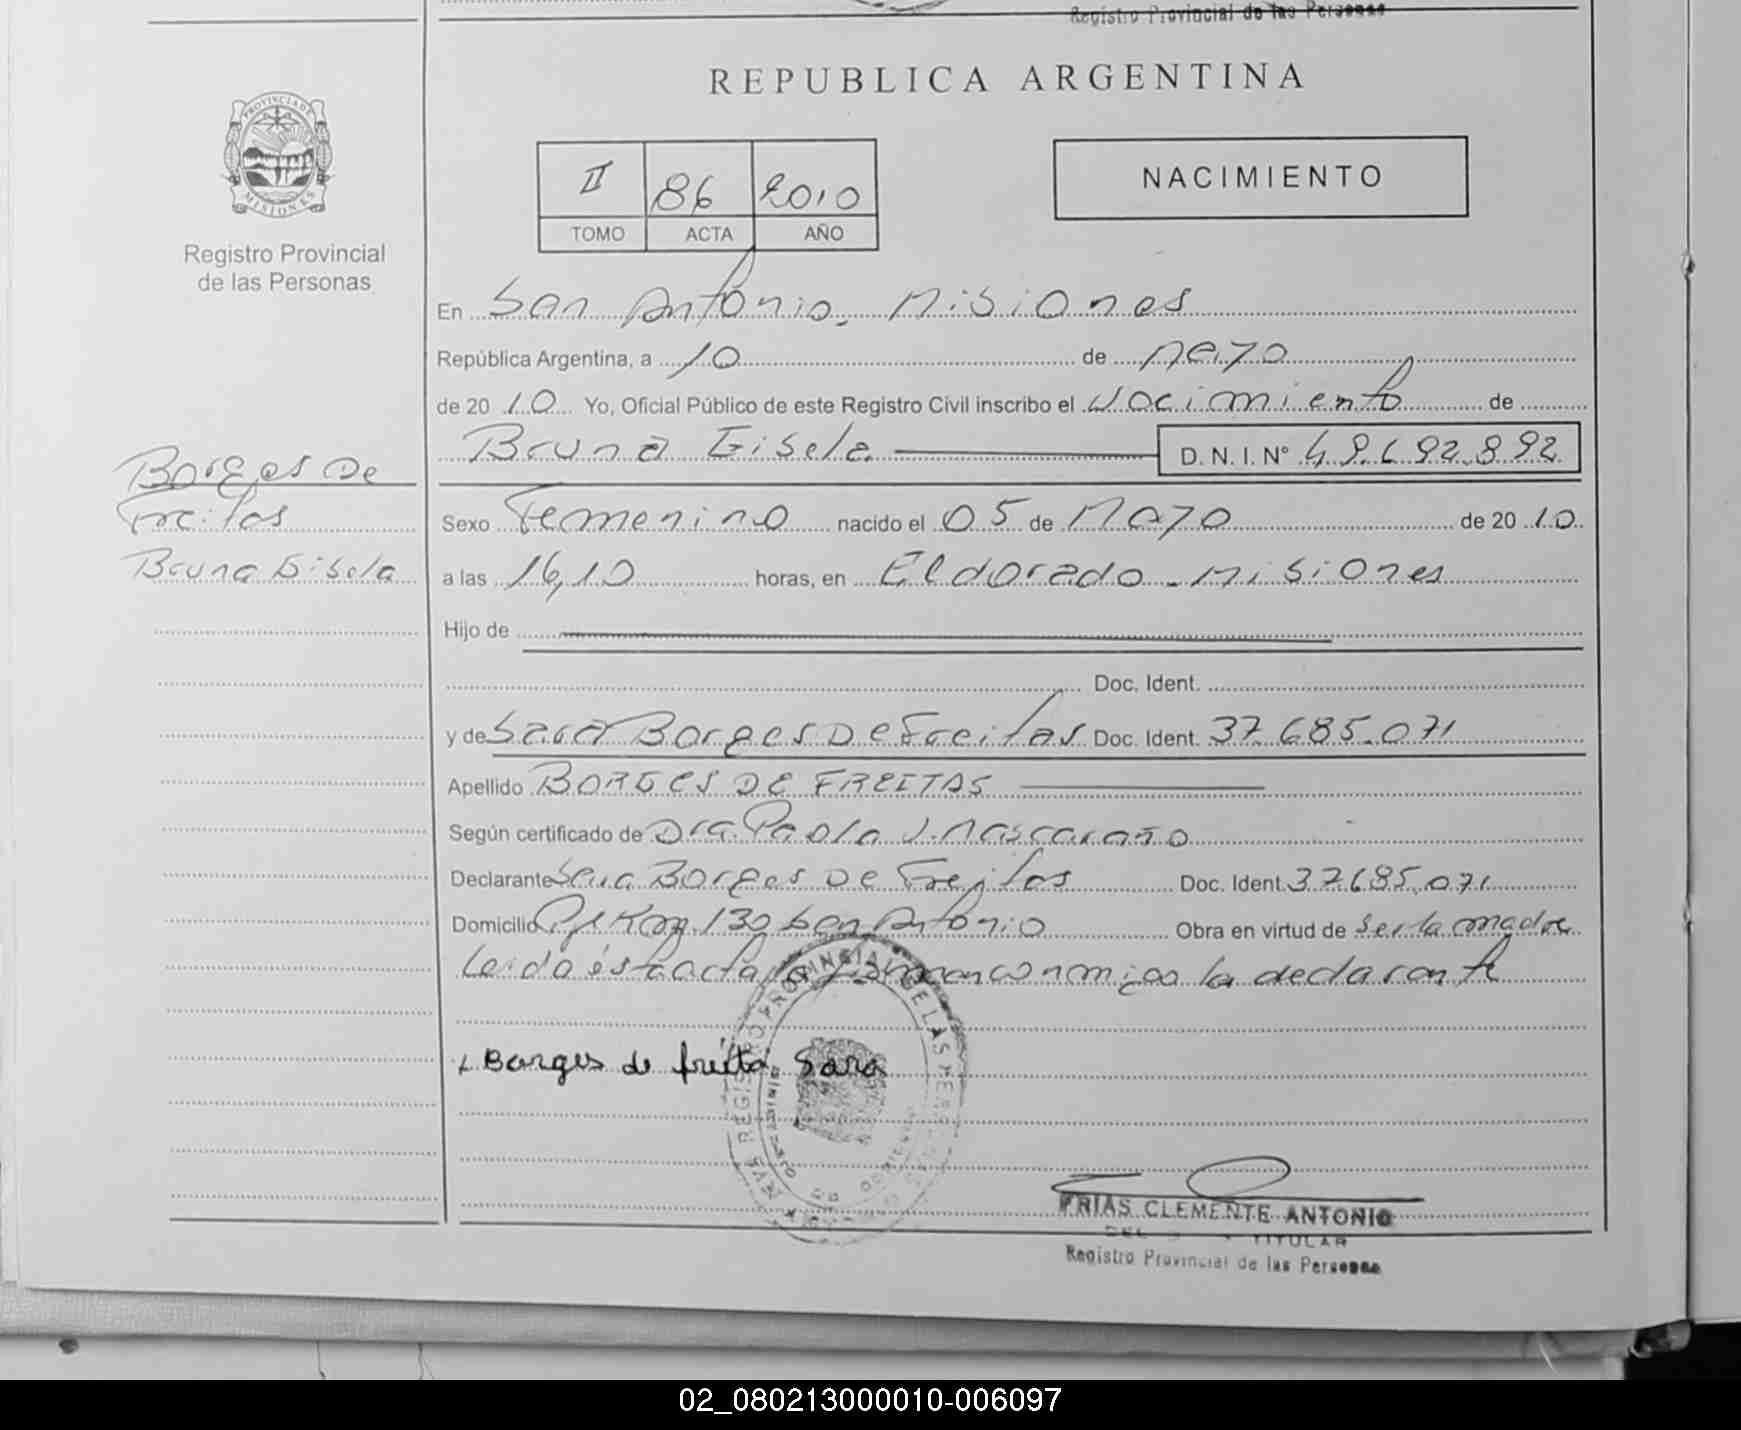 Registro Provincial de las Personas
REPUBLICA ARGENTINA
PROVINCIA DE
MISIONES
Registro Provincial
de las Personas
II 86 2010
TOMO ACTA AÑO
NACIMIENTO
En San Antonio. Misiones
República Argentina, a 10 de Mayo
de 20 10 Yo, Oficial Público de este Registro Civil inscribo el Nacimiento de
Bruna Gisela D. N. I. N° 49.692.892
Borges De
Freitas
Bruna Gisela
Sexo Femenino nacido el 05 de Mayo de 20 10
a las 16,10 horas, en Eldorado - Misiones
Hijo de
Doc. Ident.
y de Sara Borges De Freitas Doc. Ident. 37.685.071
Apellido BORGES DE FREITAS
Según certificado de Dra. Paola J. Mascaraño
Declarante Sara Borges De Freitas Doc. Ident. 37685.071
Domicilio Pje Km 130 San Antonio Obra en virtud de ser la madre
Leida ésta acta la firman conmigo la declarante
Borges de freita Sara
FRIAS CLEMENTE ANTONIO
TITULAR
Registro Provincial de las Personas
02_080213000010-006097